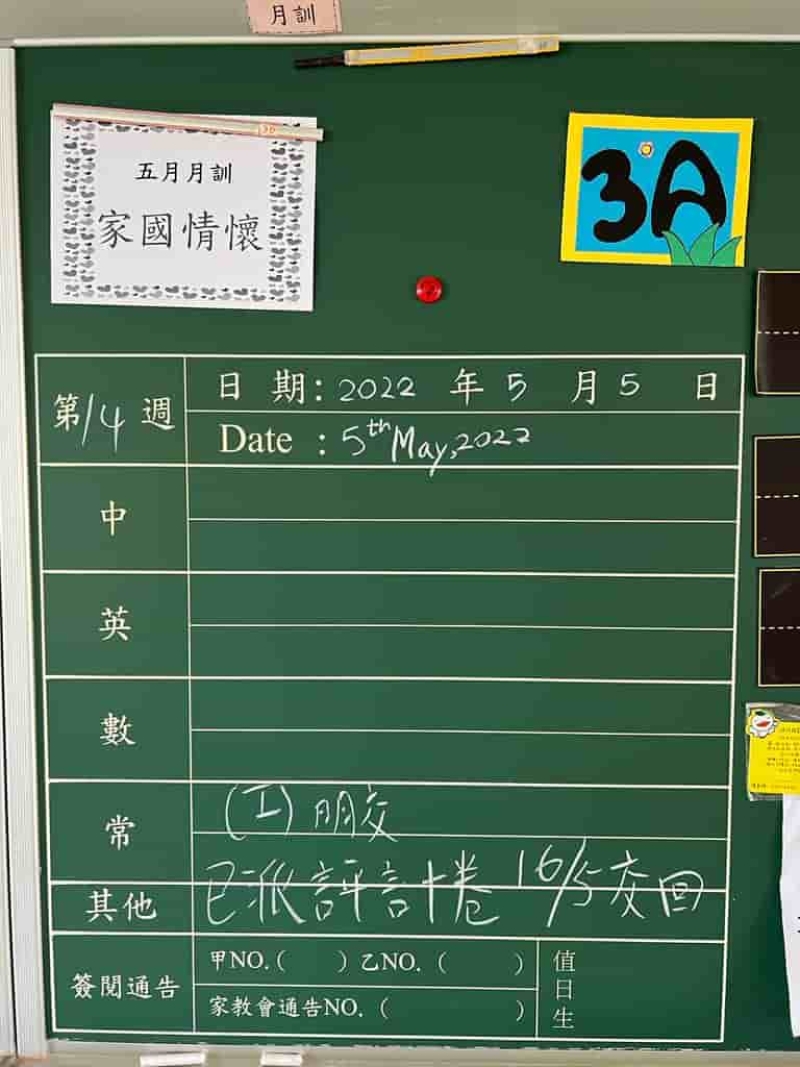 月訓
五月月訓
家國情懷
3A
第14週
日 期：2022 年 5 月 5 日
Date : 5th May, 2022
中
英
數
常
(工) 朋交
其他
已派評計卷 16/5交回
簽閱通告
甲NO.( ) 乙NO. ( )
家教會通告NO. ( )
值日生